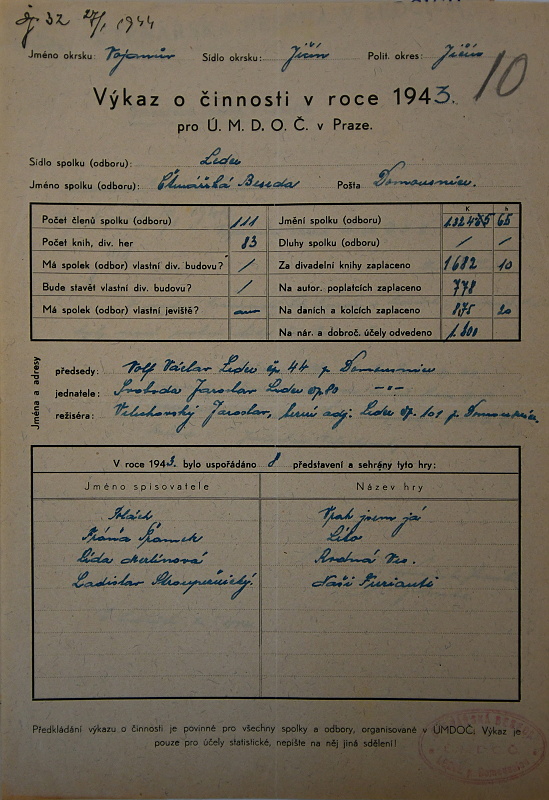 27/1 1944
10
Jméno okrsku: Sídlo okrsku: Jičín Polit. okres: Jičín
Výkaz o činnosti v roce 1943.
pro Ú. M. D. O. Č. v Praze.
Sídlo spolku (odboru): Ledce
Jméno spolku (odboru): Čtenářská Beseda Pošta Domousnice.
K h
Počet členů spolku (odboru) 111 Jmění spolku (odboru) 65
Počet knih, div. her 83 Dluhy spolku (odboru) / /
Má spolek (odbor) vlastní div. budovu? / Za divadelní knihy zaplaceno 1682 10
Bude stavět vlastní div. budovu? / Na autor. poplatcích zaplaceno 778
Má spolek (odbor) vlastní jeviště? ano Na daních a kolcích zaplaceno 875 20
Na nár. a dobroč. účely odvedeno 1.800
Jména a adresy
předsedy: Volf Václav Ledce čp. 44 p. Domousnice
jednatele: Svoboda Jaroslav Ledce čp 80 -"-
režiséra: Jaroslav, adj. Ledce čp. 101 p. Domousnice.
V roce 1943. bylo uspořádáno 8 představení a sehrány tyto hry:
Jméno spisovatele Název hry
Vrah jsem já
Fráňa Šrámek Léto
Lída Merlínová Rodná Ves.
Ladislav Stroupežnický. Naši Furianti
Předkládání výkazu o činnosti je povinné pro všechny spolky a odbory, organisované v ÚMDOČ. Výkaz je
pouze pro účely statistické, nepište na něj jiná sdělení!